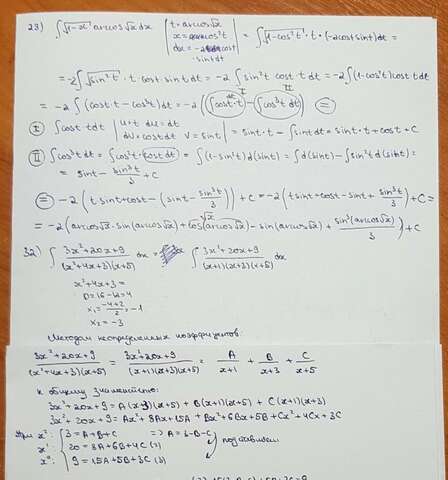 23) ∫ √(1-x) arcos√x dx | t = arcos√x = ∫ √(1-cos²t) · t · (-2cost sint) dt =
x = cos²t
dx = -2cost · sint dt
= -2∫ √(sin²t) · t cost sint dt = -2 ∫ sin²t cost t dt = -2∫ (1-cos²t) cost t dt
= -2 ∫ (cost t - cos³t) dt = -2 (∫ cost · t dt - ∫ cos³t dt) =
I ∫ cost t dt | u=t du=dt dv=cost dt v=sint | = sint · t - ∫ sint dt = sint · t + cost + C
II ∫ cos³t dt = ∫ cos²t · cost dt = ∫ (1-sin²t) d(sint) = ∫ d(sint) - ∫ sin²t d(sint) =
= sint - sin³t/3 + C
= -2 (t sint + cost - (sint - sin³t/3)) + C = -2 (t sint + cost - sint + sin³t/3) + C =
= -2 (arcos√x · sin(arcos√x) + cos(arcos√x) - sin(arcos√x) + sin³(arcos√x)/3) + C
√x
32) ∫ (3x²+20x+9)/((x²+4x+3)(x+5)) dx = ∫ (3x²+20x+9)/((x+1)(x+3)(x+5)) dx
x²+4x+3 =
D=16-12=4
x₁ = (-4+2)/2 = -1
x₂ = -3
Методом неопределенных коэффициентов:
(3x²+20x+9)/((x²+4x+3)(x+5)) = (3x²+20x+9)/((x+1)(x+3)(x+5)) = A/(x+1) + B/(x+3) + C/(x+5)
к общему знаменателю:
3x²+20x+9 = A(x+3)(x+5) + B(x+1)(x+5) + C(x+1)(x+3)
3x²+20x+9 = Ax²+8Ax+15A + Bx²+6Bx+5B + Cx²+4Cx+3C
При x²: 3=A+B+C => A=3-B-C
x¹: 20=8A+6B+4C (2) подставим
x⁰: 9=15A+5B+3C (3)